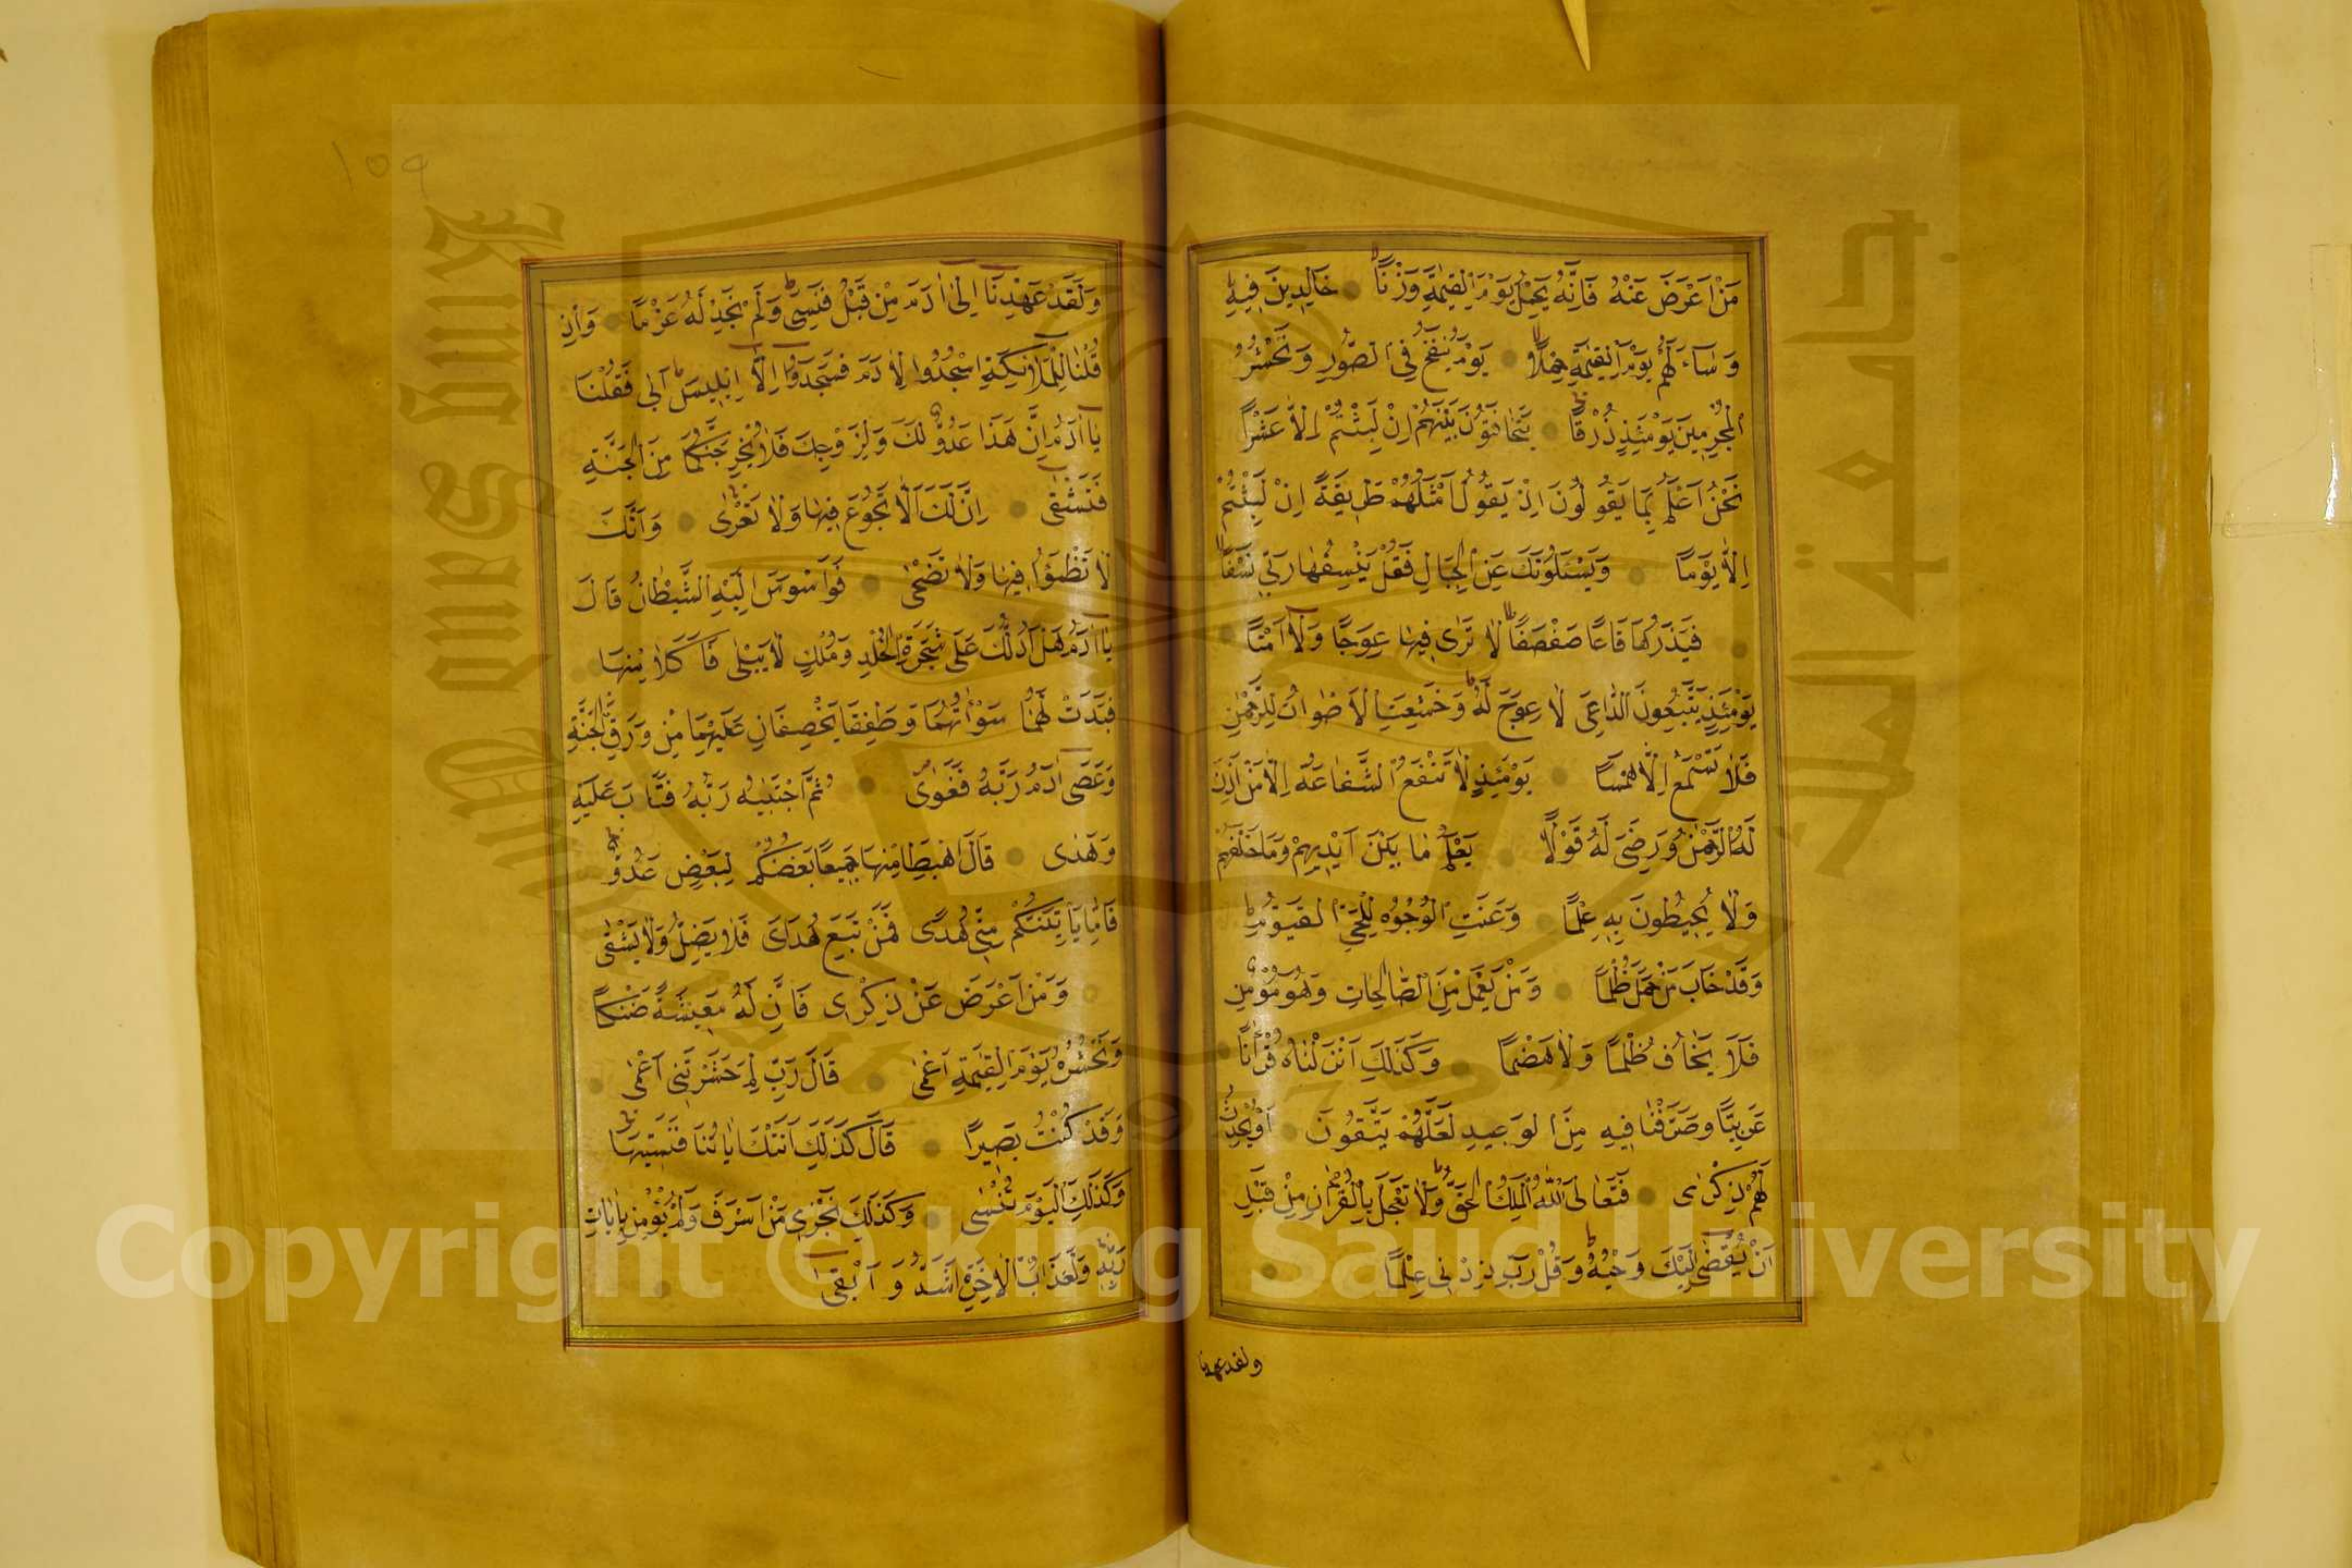 مَنْ اَعْرَضَ عَنْهُ فَاِنَّهُ يَحْمِلُ يَوْمَ الْقِيٰمَةِ وِزْرًا خَالِدِينَ فِيهِ
وَسَاءَ لَهُمْ يَوْمَ الْقِيٰمَةِ حِمْلًا يَوْمَ يُنْفَخُ فِي الصُّورِ وَنَحْشُرُ
الْمُجْرِمِينَ يَوْمَئِذٍ زُرْقًا يَتَخَافَتُونَ بَيْنَهُمْ اِنْ لَبِثْتُمْ اِلَّا عَشْرًا
نَحْنُ اَعْلَمُ بِمَا يَقُولُونَ اِذْ يَقُولُ اَمْثَلُهُمْ طَرِيقَةً اِنْ لَبِثْتُمْ
اِلَّا يَوْمًا وَيَسْئَلُونَكَ عَنِ الْجِبَالِ فَقُلْ يَنْسِفُهَا رَبِّي نَسْفًا
فَيَذَرُهَا قَاعًا صَفْصَفًا لَا تَرٰى فِيهَا عِوَجًا وَلَا اَمْتًا
يَوْمَئِذٍ يَتَّبِعُونَ الدَّاعِيَ لَا عِوَجَ لَهُ وَخَشَعَتِ الْاَصْوَاتُ لِلرَّحْمٰنِ
فَلَا تَسْمَعُ اِلَّا هَمْسًا يَوْمَئِذٍ لَا تَنْفَعُ الشَّفَاعَةُ اِلَّا مَنْ اَذِنَ
لَهُ الرَّحْمٰنُ وَرَضِيَ لَهُ قَوْلًا يَعْلَمُ مَا بَيْنَ اَيْدِيهِمْ وَمَا خَلْفَهُمْ
وَلَا يُحِيطُونَ بِهِ عِلْمًا وَعَنَتِ الْوُجُوهُ لِلْحَيِّ الْقَيُّومِ
وَقَدْ خَابَ مَنْ حَمَلَ ظُلْمًا وَمَنْ يَعْمَلْ مِنَ الصَّالِحَاتِ وَهُوَ مُؤْمِنٌ
فَلَا يَخَافُ ظُلْمًا وَلَا هَضْمًا وَكَذٰلِكَ اَنْزَلْنَاهُ قُرْاٰنًا
عَرَبِيًّا وَصَرَّفْنَا فِيهِ مِنَ الْوَعِيدِ لَعَلَّهُمْ يَتَّقُونَ اَوْ يُحْدِثُ
لَهُمْ ذِكْرًى فَتَعَالَى اللّٰهُ الْمَلِكُ الْحَقُّ وَلَا تَعْجَلْ بِالْقُرْاٰنِ مِنْ قَبْلِ
اَنْ يُقْضٰى اِلَيْكَ وَحْيُهُ وَقُلْ رَبِّ زِدْنِي عِلْمًا
ولقد عهدنا
١٥٩
وَلَقَدْ عَهِدْنَا اِلٰى اٰدَمَ مِنْ قَبْلُ فَنَسِيَ وَلَمْ نَجِدْ لَهُ عَزْمًا وَاِذْ
قُلْنَا لِلْمَلَائِكَةِ اسْجُدُوا لِاٰدَمَ فَسَجَدُوا اِلَّا اِبْلِيسَ اَبٰى فَقُلْنَا
يَا اٰدَمُ اِنَّ هَذَا عَدُوٌّ لَكَ وَلِزَوْجِكَ فَلَا يُخْرِجَنَّكُمَا مِنَ الْجَنَّةِ
فَتَشْقٰى اِنَّ لَكَ اَلَّا تَجُوعَ فِيهَا وَلَا تَعْرٰى وَاَنَّكَ
لَا تَظْمَؤُا فِيهَا وَلَا تَضْحٰى فَوَسْوَسَ اِلَيْهِ الشَّيْطَانُ قَالَ
يَا اٰدَمُ هَلْ اَدُلُّكَ عَلٰى شَجَرَةِ الْخُلْدِ وَمُلْكٍ لَا يَبْلٰى فَاَكَلَا مِنْهَا
فَبَدَتْ لَهُمَا سَوْاٰتُهُمَا وَطَفِقَا يَخْصِفَانِ عَلَيْهِمَا مِنْ وَرَقِ الْجَنَّةِ
وَعَصٰى اٰدَمُ رَبَّهُ فَغَوٰى ثُمَّ اجْتَبٰيهُ رَبُّهُ فَتَابَ عَلَيْهِ
وَهَدٰى قَالَ اهْبِطَا مِنْهَا جَمِيعًا بَعْضُكُمْ لِبَعْضٍ عَدُوٌّ
فَاِمَّا يَاْتِيَنَّكُمْ مِنِّي هُدًى فَمَنْ تَبِعَ هُدَايَ فَلَا يَضِلُّ وَلَا يَشْقٰى
وَمَنْ اَعْرَضَ عَنْ ذِكْرِي فَاِنَّ لَهُ مَعِيشَةً ضَنْكًا
وَنَحْشُرُهُ يَوْمَ الْقِيٰمَةِ اَعْمٰى قَالَ رَبِّ لِمَ حَشَرْتَنِي اَعْمٰى
وَقَدْ كُنْتُ بَصِيرًا قَالَ كَذٰلِكَ اَتَتْكَ اٰيَاتُنَا فَنَسِيتَهَا
وَكَذٰلِكَ الْيَوْمَ تُنْسٰى وَكَذٰلِكَ نَجْزِي مَنْ اَسْرَفَ وَلَمْ يُؤْمِنْ بِاٰيَاتِ
رَبِّهِ وَلَعَذَابُ الْاٰخِرَةِ اَشَدُّ وَاَبْقٰى
King Saud University
جامعة الملك
1957
Copyright © King Saud University